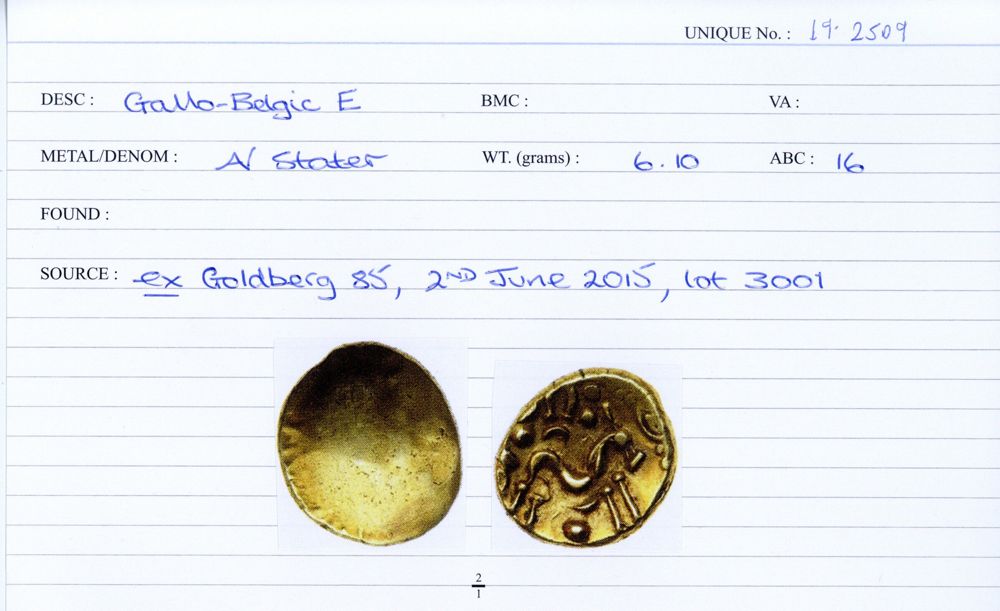 UNIQUE No. : 19. 2509
DESC : Gallo-Belgic E BMC : VA :
METAL/DENOM : AV Stater WT. (grams) : 6.10 ABC : 16
FOUND :
SOURCE : ex Goldberg 85, 2ND June 2015, lot 3001
2
1